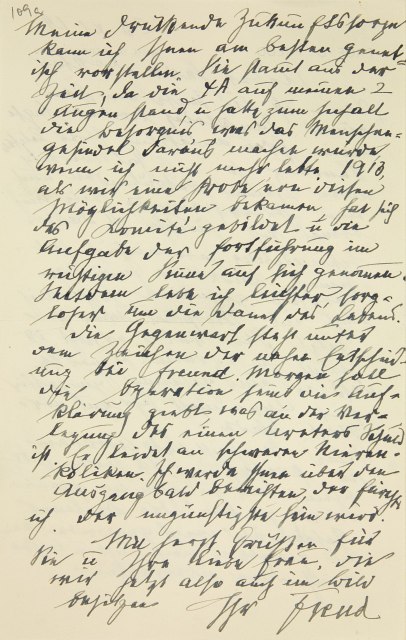 109a
Meine drückende Zukunftssorge
kann ich Ihnen am besten genet-
isch vorstellen. Sie stamt aus der
Zeit, da die ΨA auf meinen 2
Augen stand u hatte zum Inhalt
die Besorgnis was das Menschen-
gesindel daraus machen würde
wenn ich nicht mehr lebte. 1913,
als wir eine Probe von diesen
Möglichkeiten bekamen, hat sich
das Comité gebildet u die
Aufgabe der Fortführung im
richtigen Sinne auf sich genomen.
Seitdem lebe ich leichter, sorg-
loser um die Dauer des Lebens.
Die Gegenwart steht unter
dem Zeichen der nahen Entscheid-
ung bei Freund. Morgen soll
die Operation sein die Auf-
klärung giebt was an der Ver-
legung des einen Ureters Schuld
ist. Er leidet an schweren Nieren-
koliken. Ich werde Ihnen über den
Ausgang bald berichten, der fürchte
ich der ungünstigste sein wird.
Mit herzl Grüßen für
Sie u Ihre liebe Frau, die
wir jetzt also auch im Bild
besitzen
Ihr Freud